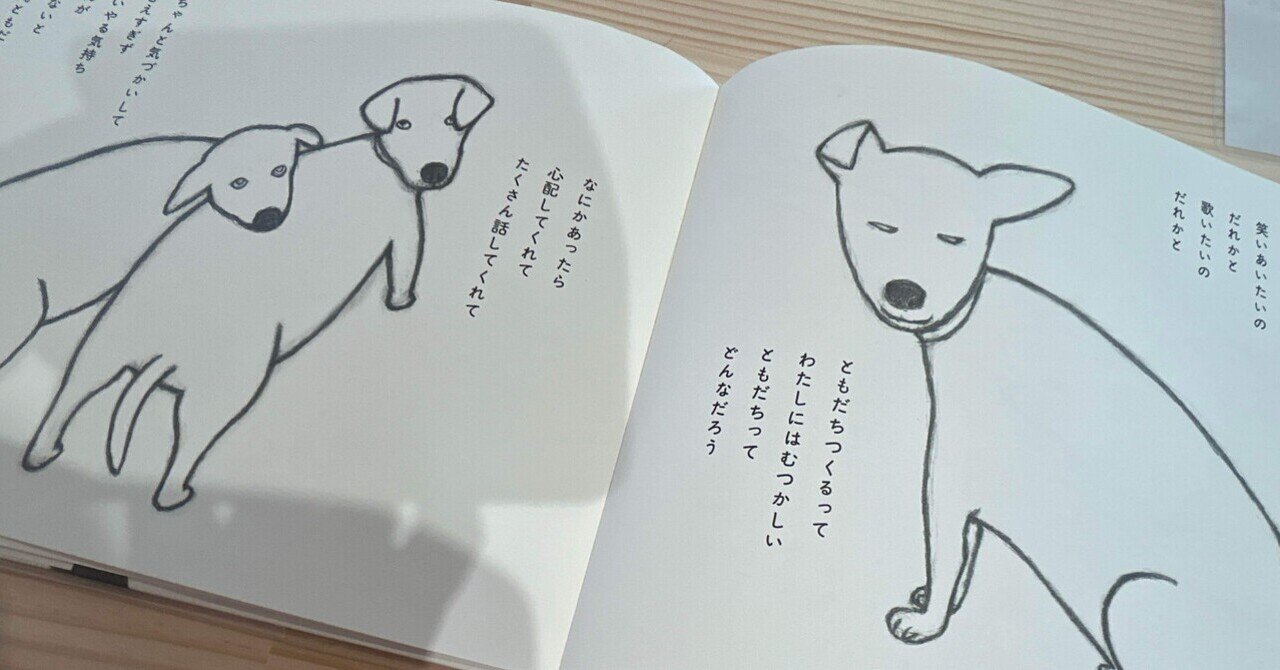 笑いあいたいの
だれかと
歌いたいの
だれかと
ともだちつくるって
わたしにはむつかしい
ともだちって
どんなだろう
なにかあったら
心配してくれて
たくさん話してくれて
ちゃんと気づかいして
えすぎず
いやる気持ち
が
ないと
ともだ